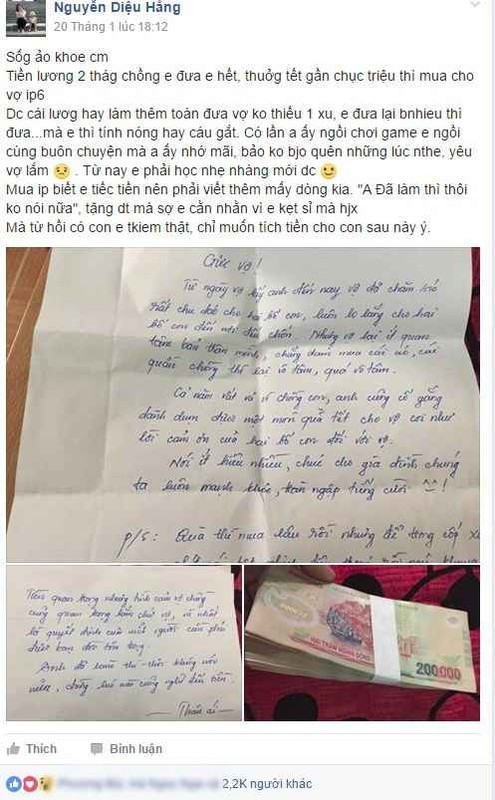 Nguyễn Diệu Hằng
20 Tháng 1 lúc 18:12
Sốg ảo khoe cm
Tiền lương 2 thág chồng e đưa e hết, thưởg tết gần chục triệu thì mua cho
vợ ip6
Dc cái lươg hay làm thêm toàn đưa vợ ko thiếu 1 xu, e đưa lại bnhieu thì
đưa...mà e thì tính nóng hay cáu gắt. Có lần a ấy ngồi chơi game e ngồi
cùng buôn chuyện mà a ấy nhớ mãi, bảo ko bjo quên những lúc nthe, yêu
vợ lắm. Từ nay e phải học nhẹ nhàng mới dc
Mua ip biết e tiếc tiền nên phải viết thêm mấy dòng kia. "A Đã làm thì thôi
ko nói nữa", tặng dt mà sợ e cằn nhằn vì e kẹt sỉ mà hjx
Mà từ hồi có con e tkiem thật, chỉ muốn tích tiền cho con sau này ý.
Gửi vợ!
Từ ngày vợ lấy anh đến nay vợ đã chăm sóc
rất chu đáo cho hai bố con, luôn lo lắng cho hai
bố con đến nơi đến chốn. Nhưng vợ lại ít quan
tâm bản thân mình, chẳng dám mua cái áo, cái
quần chồng thì lại vô tâm, quá vô tâm.
Cả năm vất vả vì chồng con, anh cũng cố gắng
dành dụm được một món quà tết cho vợ coi như
lời cảm ơn của hai bố con đối với vợ.
Nói ít hiểu nhiều, chúc cho gia đình chúng
ta luôn mạnh khỏe, tràn ngập tiếng cười ^^!
p/s: Quà thì mua lâu rồi nhưng để trong cốp
Tiền quan trọng nhưng tình cảm vợ chồng
cũng quan trọng lắm chứ vợ, và nhất
là quyết định của mỗi người cần phải
được bạn đời tôn trọng.
Anh đã làm thì thôi không nói
nữa, đừng lúc nào cũng nghĩ đến tiền.
Thân ái
HAI TRĂM NGHÌN ĐỒNG
200.000
Thích
Bình luận
2,2K người khác